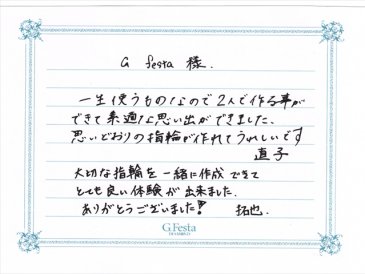 G festa 様.
一生使うものなので2人で作る事が
できて素適な思い出ができました、
思いどおりの指輪が作れてうれしいです
直子
大切な指輪を一緒に作成できて
とても良い体験が出来ました.
ありがとうございました!
拓也.
G.Festa